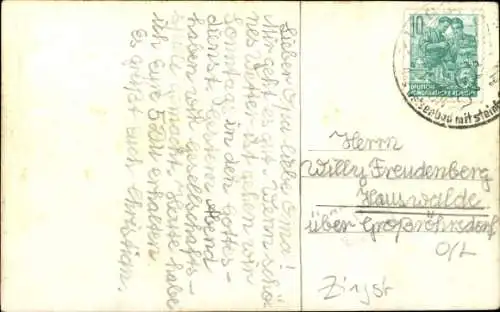 Lieber Opa, liebe Oma!
Mir geht es gut. Wenn schö-
nes Wetter ist gehen wir
Sonntag in den Gottes-
dienst. Gestern Abend
haben wir Gesellschafts-
spiele gemacht. Karte habe
ich Eure erhalten.
Es grüßt euch Christian.
10
DEUTSCHE
DEMOKRATISCHE REPUBLIK
seebad mit stein
Herrn
Willy Freudenberg
Hauswalde
über Großröhrsdorf
O/L
Zingst